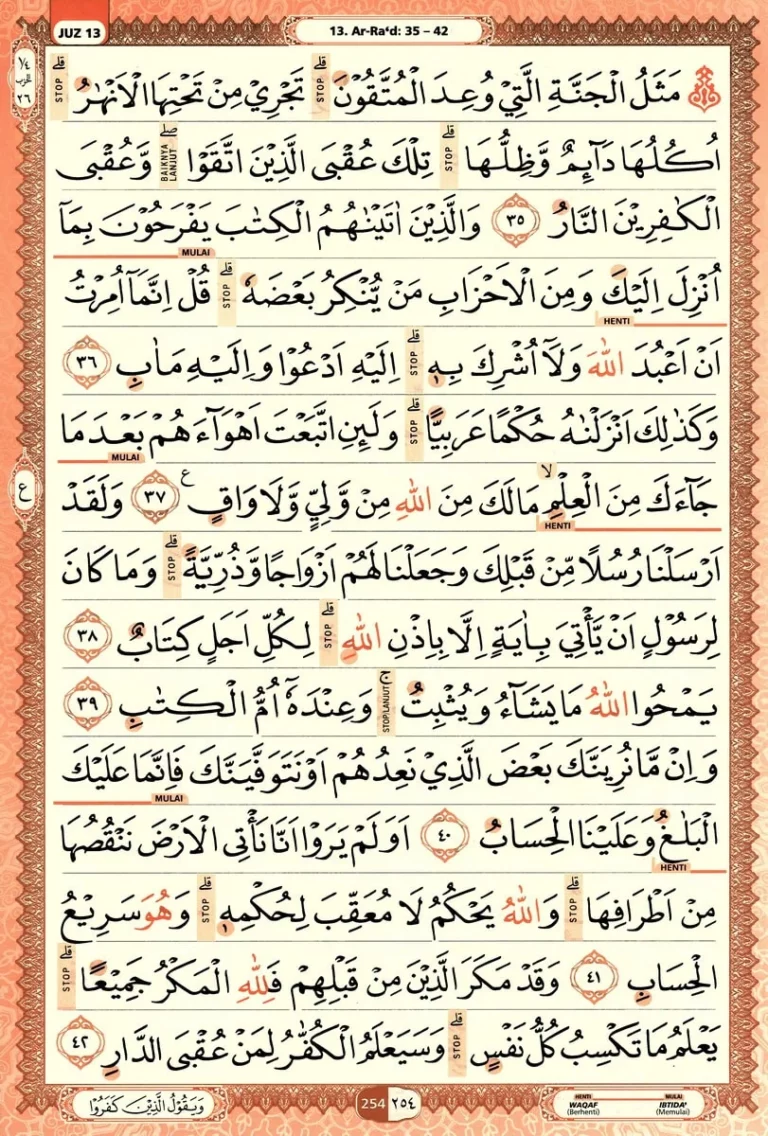 JUZ 13
13. Ar-Ra‘d: 35 – 42
مَثَلُ الْجَنَّةِ الَّتِيْ وُعِدَ الْمُتَّقُوْنَۗ تَجْرِيْ مِنْ تَحْتِهَا الْاَنْهٰرُۗ
اُكُلُهَا دَاۤىِٕمٌ وَّظِلُّهَاۗ تِلْكَ عُقْبَى الَّذِيْنَ اتَّقَوْا ۖوَّعُقْبَى
الْكٰفِرِيْنَ النَّارُ ٣٥ وَالَّذِيْنَ اٰتَيْنٰهُمُ الْكِتٰبَ يَفْرَحُوْنَ بِمَآ
اُنْزِلَ اِلَيْكَ وَمِنَ الْاَحْزَابِ مَنْ يُّنْكِرُ بَعْضَهٗۗ قُلْ اِنَّمَآ اُمِرْتُ
اَنْ اَعْبُدَ اللّٰهَ وَلَآ اُشْرِكَ بِهٖۗ اِلَيْهِ اَدْعُوْا وَاِلَيْهِ مَاٰبِ ٣٦
وَكَذٰلِكَ اَنْزَلْنٰهُ حُكْمًا عَرَبِيًّاۗ وَلَىِٕنِ اتَّبَعْتَ اَهْوَاۤءَهُمْ بَعْدَمَا
جَاۤءَكَ مِنَ الْعِلْمِۙ مَا لَكَ مِنَ اللّٰهِ مِنْ وَّلِيٍّ وَّلَا وَاقٍ ࣖ ٣٧ وَلَقَدْ
اَرْسَلْنَا رُسُلًا مِّنْ قَبْلِكَ وَجَعَلْنَا لَهُمْ اَزْوَاجًا وَّذُرِّيَّةًۗ وَمَا كَانَ
لِرَسُوْلٍ اَنْ يَّأْتِيَ بِاٰيَةٍ اِلَّا بِاِذْنِ اللّٰهِۗ لِكُلِّ اَجَلٍ كِتَابٌ ٣٨
يَمْحُوا اللّٰهُ مَا يَشَاۤءُ وَيُثْبِتُۚ وَعِنْدَهٗٓ اُمُّ الْكِتٰبِ ٣٩
وَاِنْ مَّا نُرِيَنَّكَ بَعْضَ الَّذِيْ نَعِدُهُمْ اَوْ نَتَوَفَّيَنَّكَ فَاِنَّمَا عَلَيْكَ
الْبَلٰغُ وَعَلَيْنَا الْحِسَابُ ٤٠ اَوَلَمْ يَرَوْا اَنَّا نَأْتِى الْاَرْضَ نَنْقُصُهَا
مِنْ اَطْرَافِهَاۗ وَاللّٰهُ يَحْكُمُ لَا مُعَقِّبَ لِحُكْمِهٖۗ وَهُوَ سَرِيْعُ
الْحِسَابِ ٤١ وَقَدْ مَكَرَ الَّذِيْنَ مِنْ قَبْلِهِمْ فَلِلّٰهِ الْمَكْرُ جَمِيْعًاۗ
يَعْلَمُ مَا تَكْسِبُ كُلُّ نَفْسٍۗ وَسَيَعْلَمُ الْكُفّٰرُ لِمَنْ عُقْبَى الدَّارِ ٤٢
وَيَقُوْلُ الَّذِيْنَ كَفَرُوْا
254 ٢٥٤
HENTI WAQAF (Berhenti)
MULAI IBTIDA’ (Memulai)